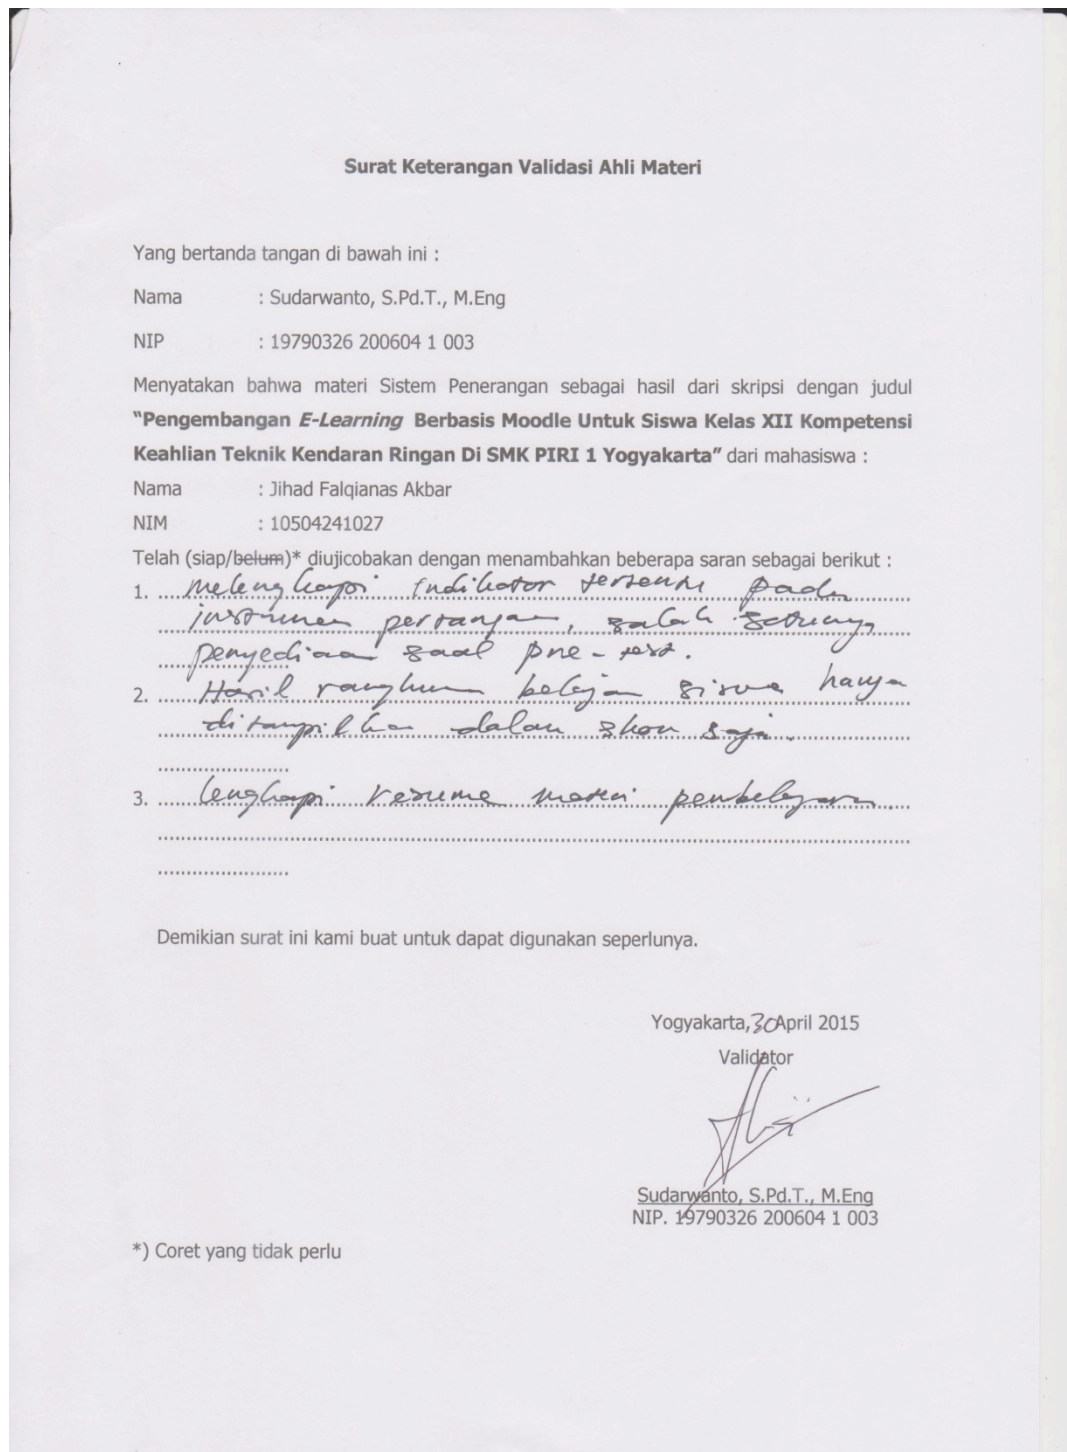 Surat Keterangan Validasi Ahli Materi
Yang bertanda tangan di bawah ini :
Nama : Sudarwanto, S.Pd.T., M.Eng
NIP : 19790326 200604 1 003
Menyatakan bahwa materi Sistem Penerangan sebagai hasil dari skripsi dengan judul
“Pengembangan E-Learning Berbasis Moodle Untuk Siswa Kelas XII Kompetensi
Keahlian Teknik Kendaran Ringan Di SMK PIRI 1 Yogyakarta” dari mahasiswa :
Nama : Jihad Falqianas Akbar
NIM : 10504241027
Telah (siap/belum)* diujicobakan dengan menambahkan beberapa saran sebagai berikut :
1. melengkapi Indikator pada
instrumen, salah satunya
penyediaan soal pre-test.
2. Hasil belajar siswa hanya
ditampilkan dalam skor saja.
3. Lengkapi resume materi pembelajaran.
Demikian surat ini kami buat untuk dapat digunakan seperlunya.
Yogyakarta, 30 April 2015
Validator
Sudarwanto, S.Pd.T., M.Eng
NIP. 19790326 200604 1 003
*) Coret yang tidak perlu